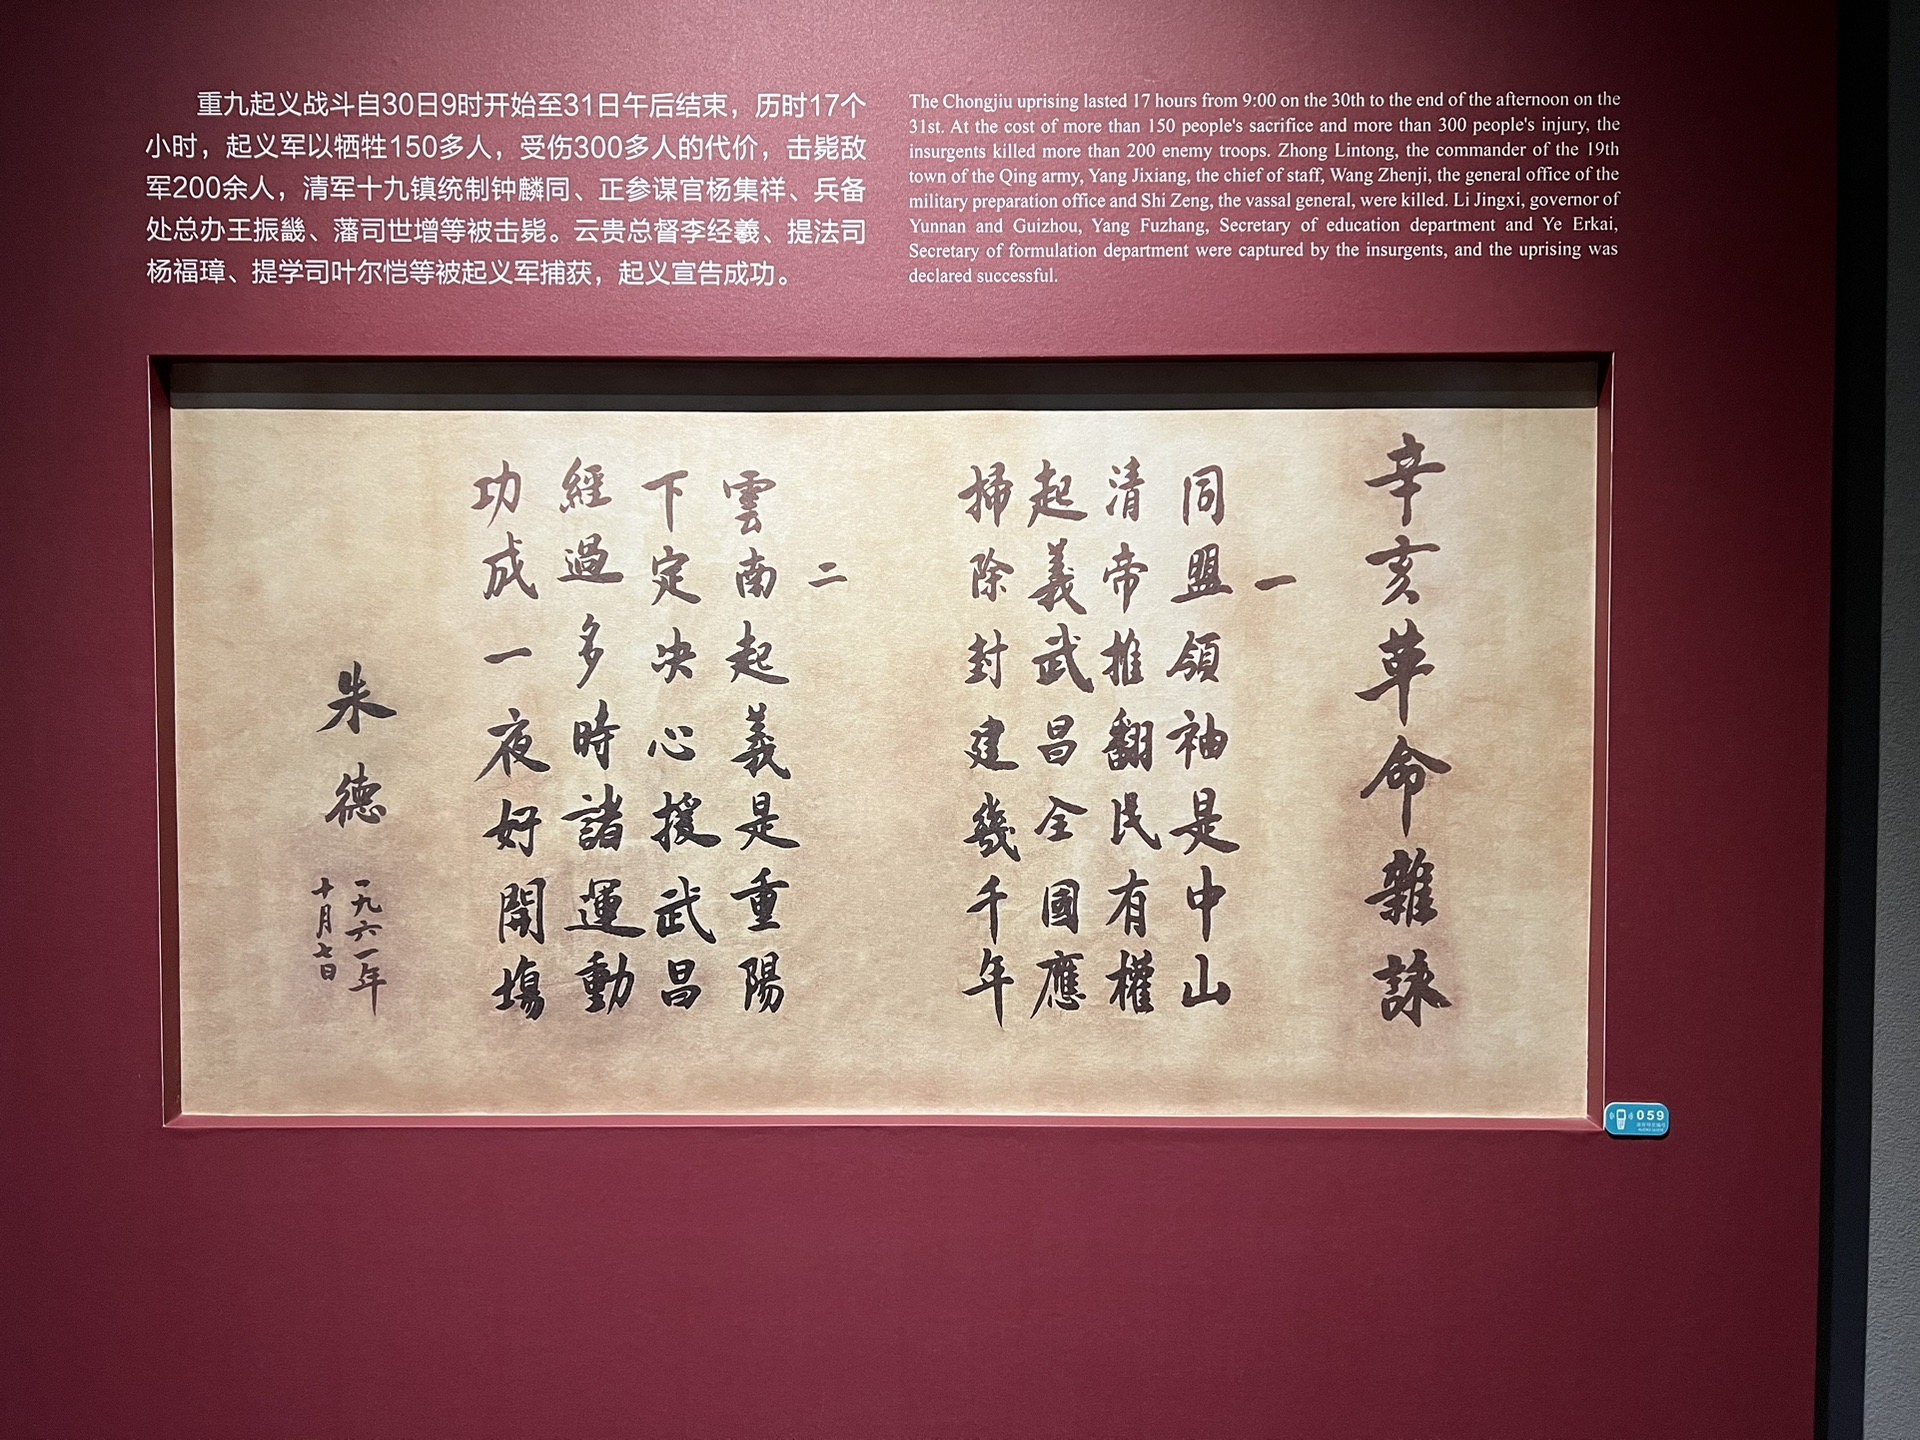 重九起义战斗自30日9时开始至31日午后结束，历时17个
小时，起义军以牺牲150多人，受伤300多人的代价，击毙敌
军200余人，清军十九镇统制钟麟同、正参谋官杨集祥、兵备
处总办王振畿、藩司世增等被击毙。云贵总督李经羲、提法司
杨福璋、提学司叶尔恺等被起义军捕获，起义宣告成功。
The Chongjiu uprising lasted 17 hours from 9:00 on the 30th to the end of the afternoon on the
31st. At the cost of more than 150 people's sacrifice and more than 300 people's injury, the
insurgents killed more than 200 enemy troops. Zhong Lintong, the commander of the 19th
town of the Qing army, Yang Jixiang, the chief of staff, Wang Zhenji, the general office of the
military preparation office and Shi Zeng, the vassal general, were killed. Li Jingxi, governor of
Yunnan and Guizhou, Yang Fuzhang, Secretary of education department and Ye Erkai,
Secretary of formulation department were captured by the insurgents, and the uprising was
declared successful.
辛亥革命雜詠
一
同盟領袖是中山
清帝推翻民有權
起義武昌全國應
掃除封建幾千年
二
雲南起義是重陽
下定决心援武昌
經過多時諸運動
功成一夜好開場
朱德
一九六一年
十月七日
059